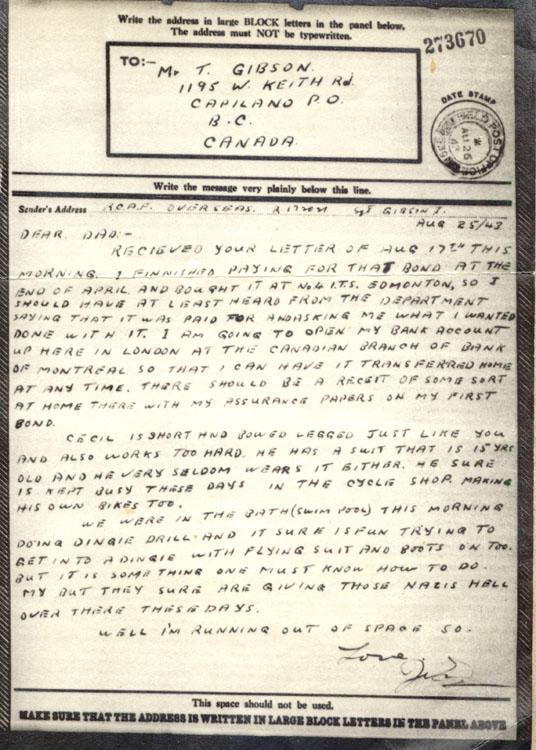 Write the address in large BLOCK letters in the panel below.
The address must NOT be typewritten.
273670
TO:-
Mr T. GIBSON.
1195 W. KEITH Rd.
CAPILANO P.O.
B.C.
CANADA.
DATE STAMP
POST OFFICE
AU 25
Write the message very plainly below this line.
Sender's Address R.C.A.F. OVERSEAS. GIBSON J.
AUG 25/43
DEAR DAD:-
RECIEVED YOUR LETTER OF AUG 17TH THIS
MORNING. I FINNISHED PAYING FOR THAT BOND AT THE
END OF APRIL AND BOUGHT IT AT No4 I.T.S. EDMONTON, SO I
SHOULD HAVE AT LEAST HEARD FROM THE DEPARTMENT
SAYING THAT IT WAS PAID FOR AND ASKING ME WHAT I WANTED
DONE WITH IT. I AM GOING TO OPEN MY BANK ACCOUNT
UP HERE IN LONDON AT THE CANADIAN BRANCH OF BANK
OF MONTREAL SO THAT I CAN HAVE IT TRANSFERRED HOME
AT ANY TIME. THERE SHOULD BE A RECEIT OF SOME SORT
AT HOME THERE WITH MY ASSURANCE PAPERS ON MY FIRST
BOND.
CECIL IS SHORT AND BOWED LEGGED JUST LIKE YOU
AND ALSO WORKS TOO HARD. HE HAS A SUIT THAT IS 15 YRS
OLD AND HE VERY SELDOM WEARS IT EITHER. HE SURE
IS KEPT BUSY THESE DAYS IN THE CYCLE SHOP. MAKING
HIS OWN BIKES TOO.
WE WERE IN THE BATH (SWIM POOL) THIS MORNING
DOING DINGIE DRILL AND IT SURE IS FUN TRYING TO
GET INTO A DINGIE WITH FLYING SUIT AND BOOTS ON TOO.
BUT IT IS SOMETHING ONE MUST KNOW HOW TO DO.
MY BUT THEY SURE ARE GIVING THOSE NAZIS HELL
OVER THERE THESE DAYS.
WELL I'M RUNNING OUT OF SPACE SO.
Love
This space should not be used.
MAKE SURE THAT THE ADDRESS IS WRITTEN IN LARGE BLOCK LETTERS IN THE PANEL ABOVE